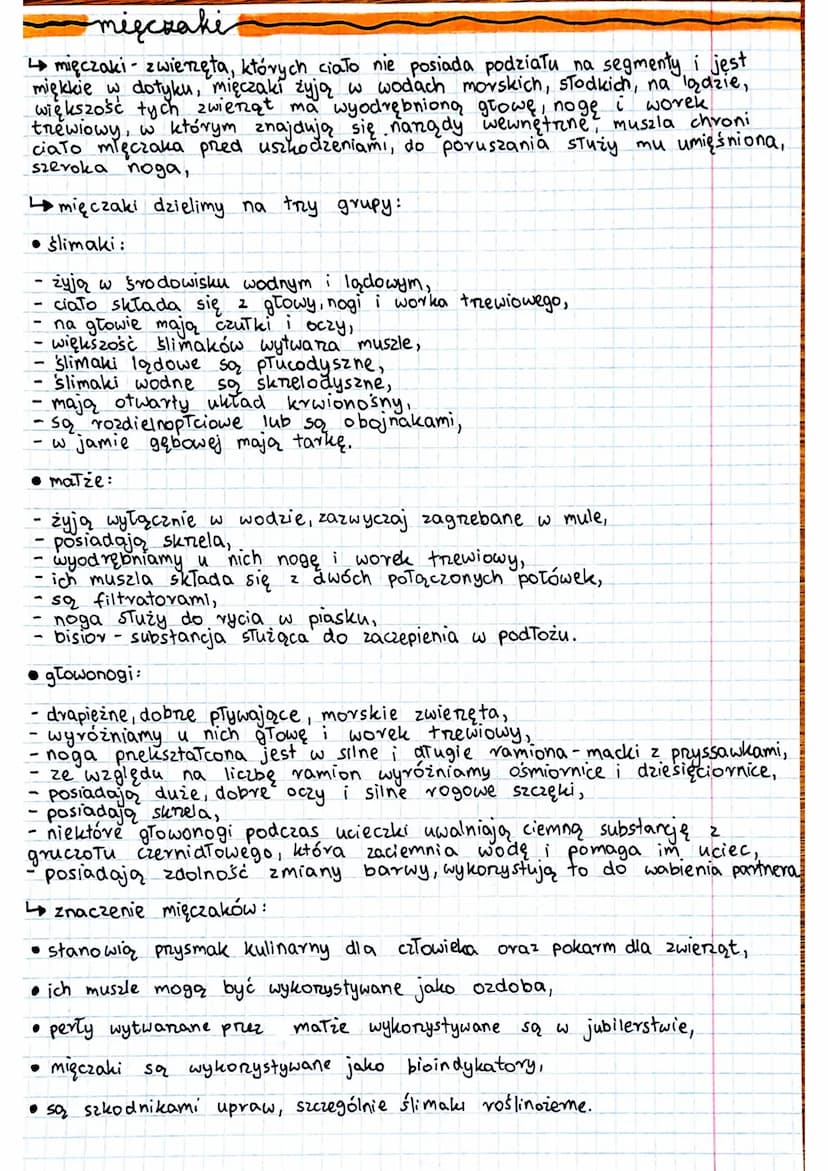 mięczaki
↳ mięczaki - zwierzęta, których ciało nie posiada podziału na segmenty i jest
miękkie w dotyku, mięczaki żyją w wodach morskich, słodkich, na lądzie,
większość tych zwierząt ma wyodrębnioną głowę, nogę i worek
trzewiowy, w którym znajdują się narządy wewnętrzne, muszla chroni
ciało mięczaka przed uszkodzeniami, do poruszania służy mu umięśniona,
szeroka noga,
↳ mięczaki dzielimy na trzy grupy:
• ślimaki:
- żyją w środowisku wodnym i lądowym,
- ciało składa się z głowy, nogi i worka trzewiowego,
- na głowie mają czułki i oczy,
- większość ślimaków wytwarza muszle,
- ślimaki lądowe są płucodyszne,
- ślimaki wodne są skrzelodyszne,
- mają otwarty układ krwionośny,
- są rozdzielnopłciowe lub są obojnakami,
- w jamie gębowej mają tarkę.
• małże:
- żyją wyłącznie w wodzie, zazwyczaj zagrzebane w mule,
- posiadają skrzela,
- wyodrębniamy u nich nogę i worek trzewiowy,
- ich muszla składa się z dwóch połączonych połówek,
- są filtratorami,
- noga służy do rycia w piasku,
- bisior - substancja służąca do zaczepienia w podłożu.
• głowonogi:
- drapieżne, dobrze pływające, morskie zwierzęta,
- wyróżniamy u nich głowę i worek trzewiowy,
- noga przekształcona jest w silne i długie ramiona - macki z przyssawkami,
- ze względu na liczbę ramion wyróżniamy ośmiornice i dziesięciornice,
- posiadają duże, dobre oczy i silne rogowe szczęki,
- posiadają skrzela,
- niektóre głowonogi podczas ucieczki uwalniają ciemną substancję z
gruczołu czernidłowego, która zaciemnia wodę i pomaga im uciec,
- posiadają zdolność zmiany barwy, wykorzystują to do wabienia partnera
↳ znaczenie mięczaków:
• stanowią przysmak kulinarny dla człowieka oraz pokarm dla zwierząt,
• ich muszle mogą być wykorzystywane jako ozdoba,
• perły wytwarzane przez małże wykorzystywane są w jubilerstwie,
• mięczaki są wykorzystywane jako bioindykatory,
• są szkodnikami upraw, szczególnie ślimaki roślinożerne.